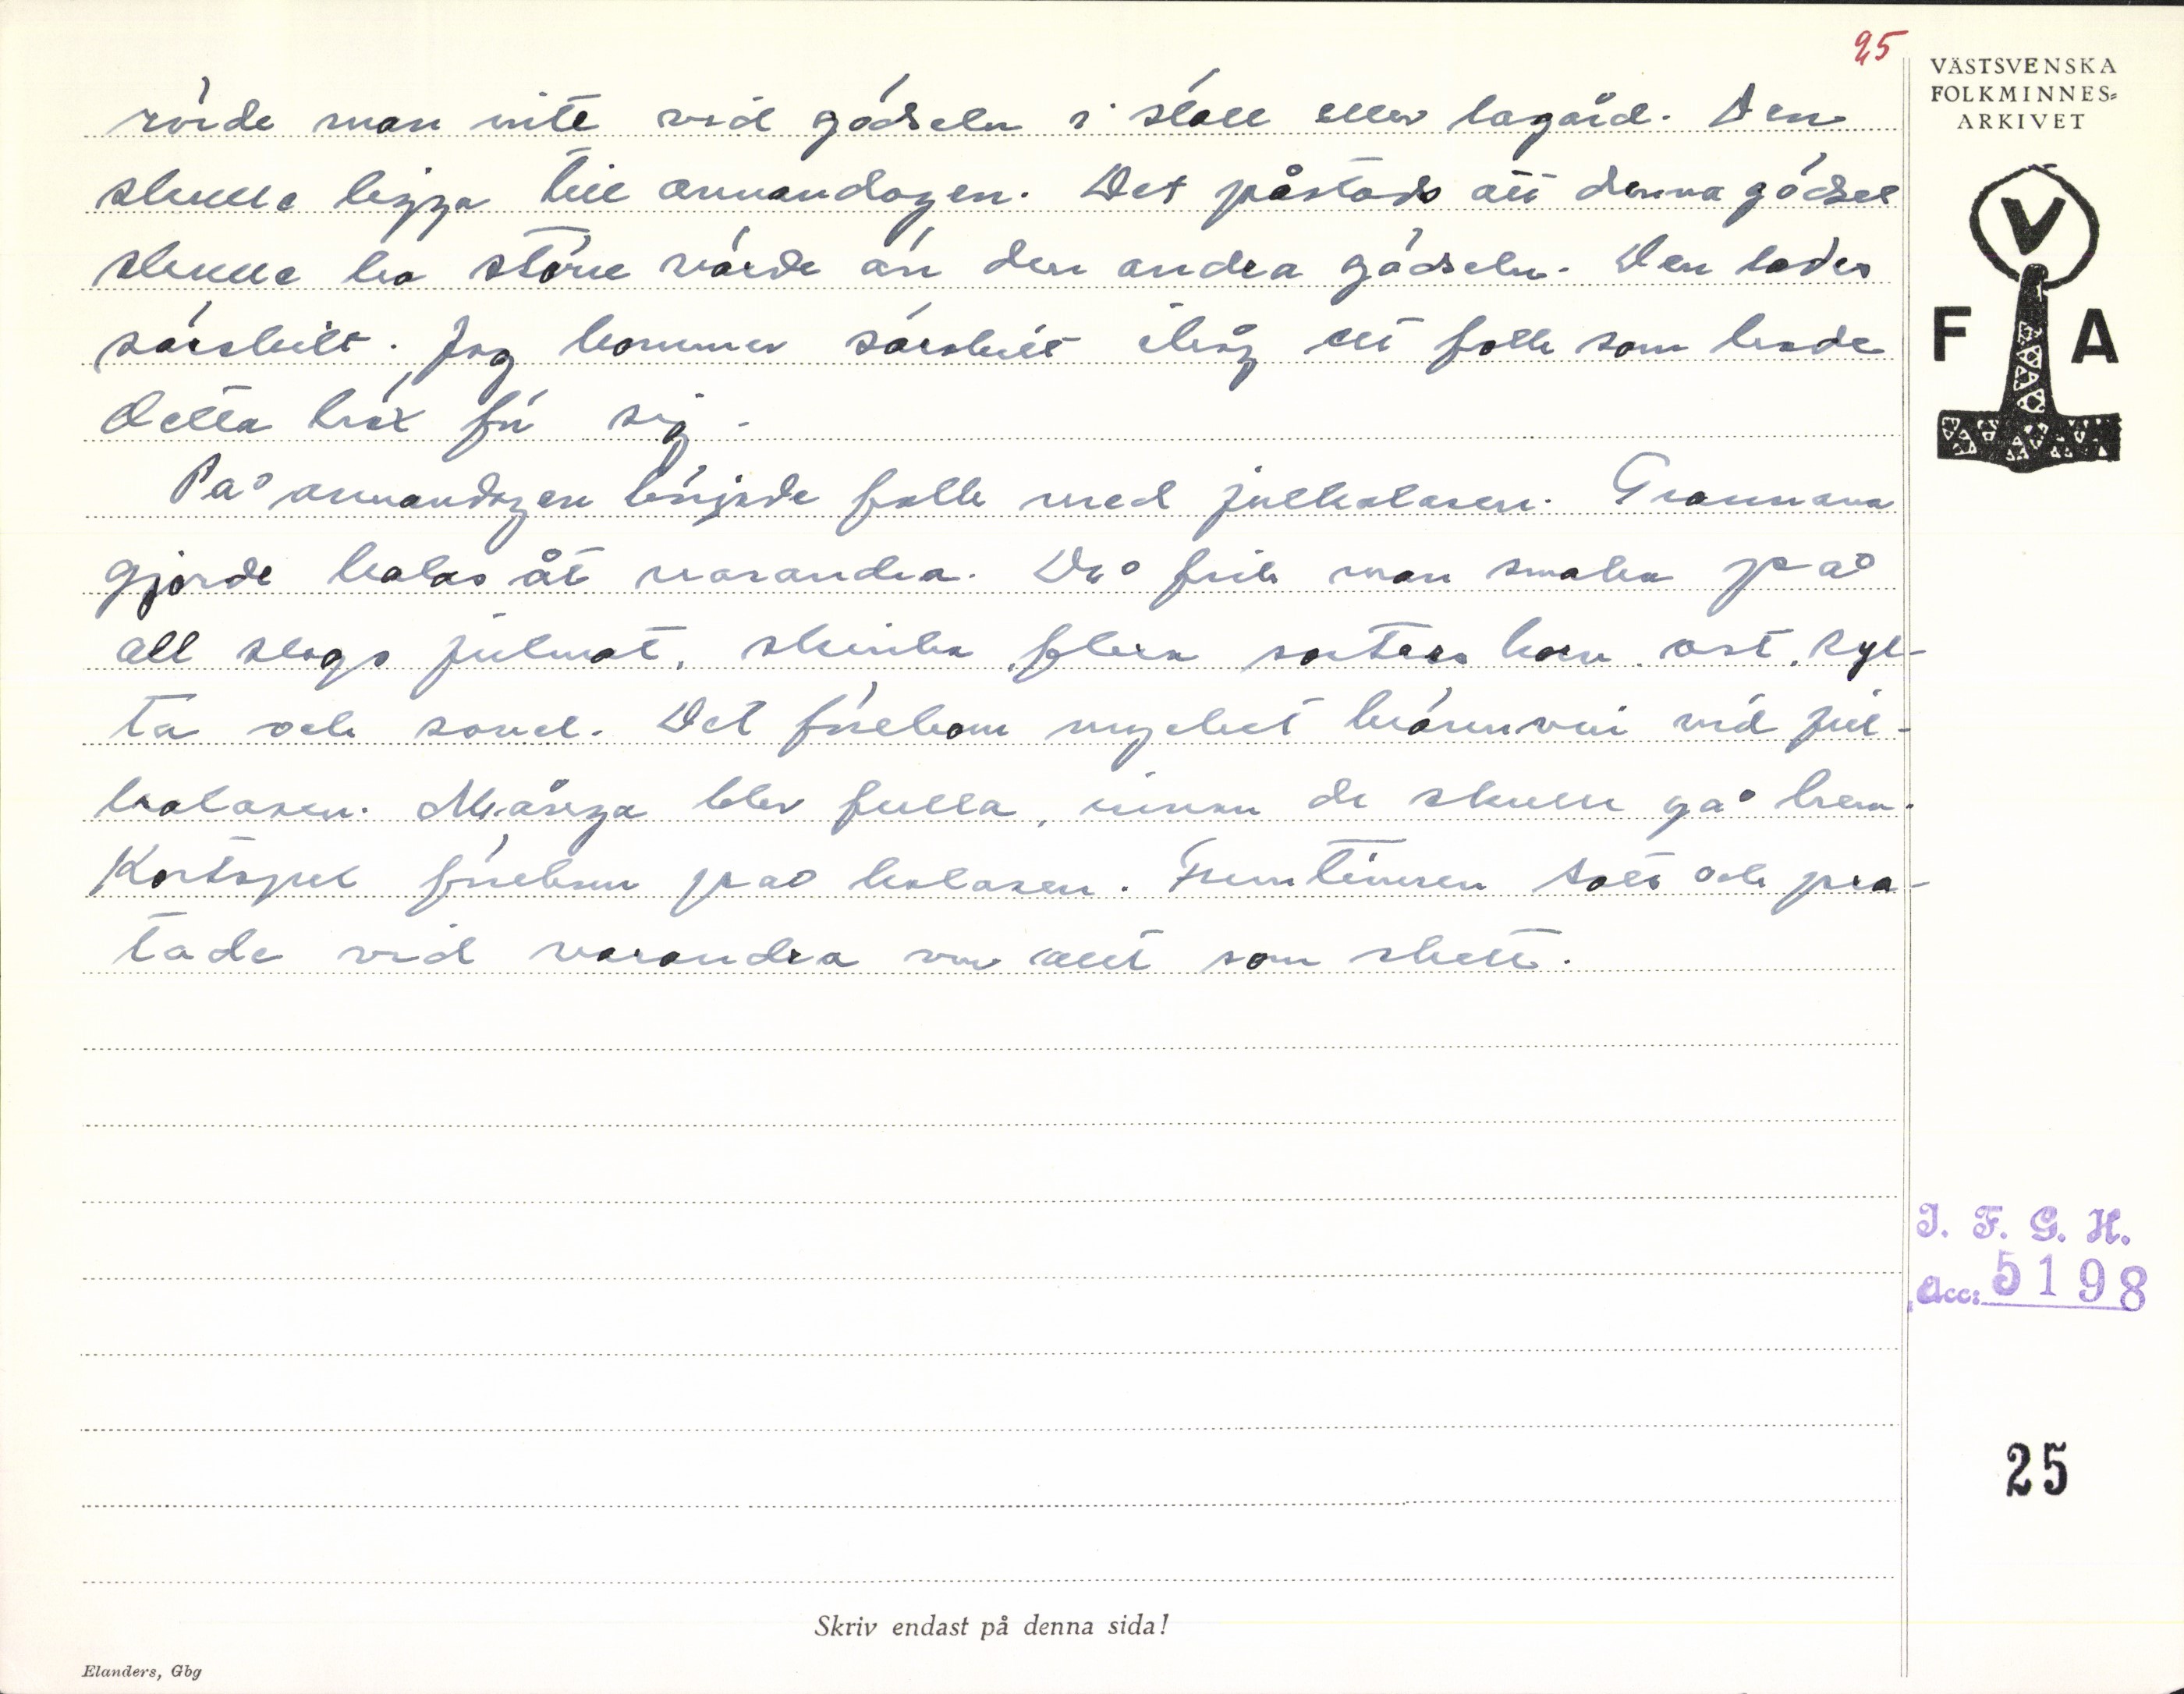 25
VÄSTSVENSKA
FOLKMINNES=
ARKIVET
V
F A
rörde man inte vid gödseln i stall eller lagård. Den
skulle ligga till annandagen. Det påstods att denna gödsel
skulle ha större värde än den andra gödseln. Den lades
särskilt. Jag kommer särskilt ihåg ett folk som hade
detta för sig.
På annandagen började folk med julkalasen. Grannarna
gjorde kalas åt varandra. Då fick man smaka på
all slags julmat, skinka, flera sorters korv, ost, syl-
ta och sovel. Det förekom mycket brännvin vid jul-
kalasen. Många blev fulla, innan de skulle gå hem.
Kortspel förekom på kalasen. Fruntimren satt och pra-
tade vid varandra om allt som skett.
I. F. G. H.
Acc: 5198
25
Skriv endast på denna sida!
Elanders, Gbg